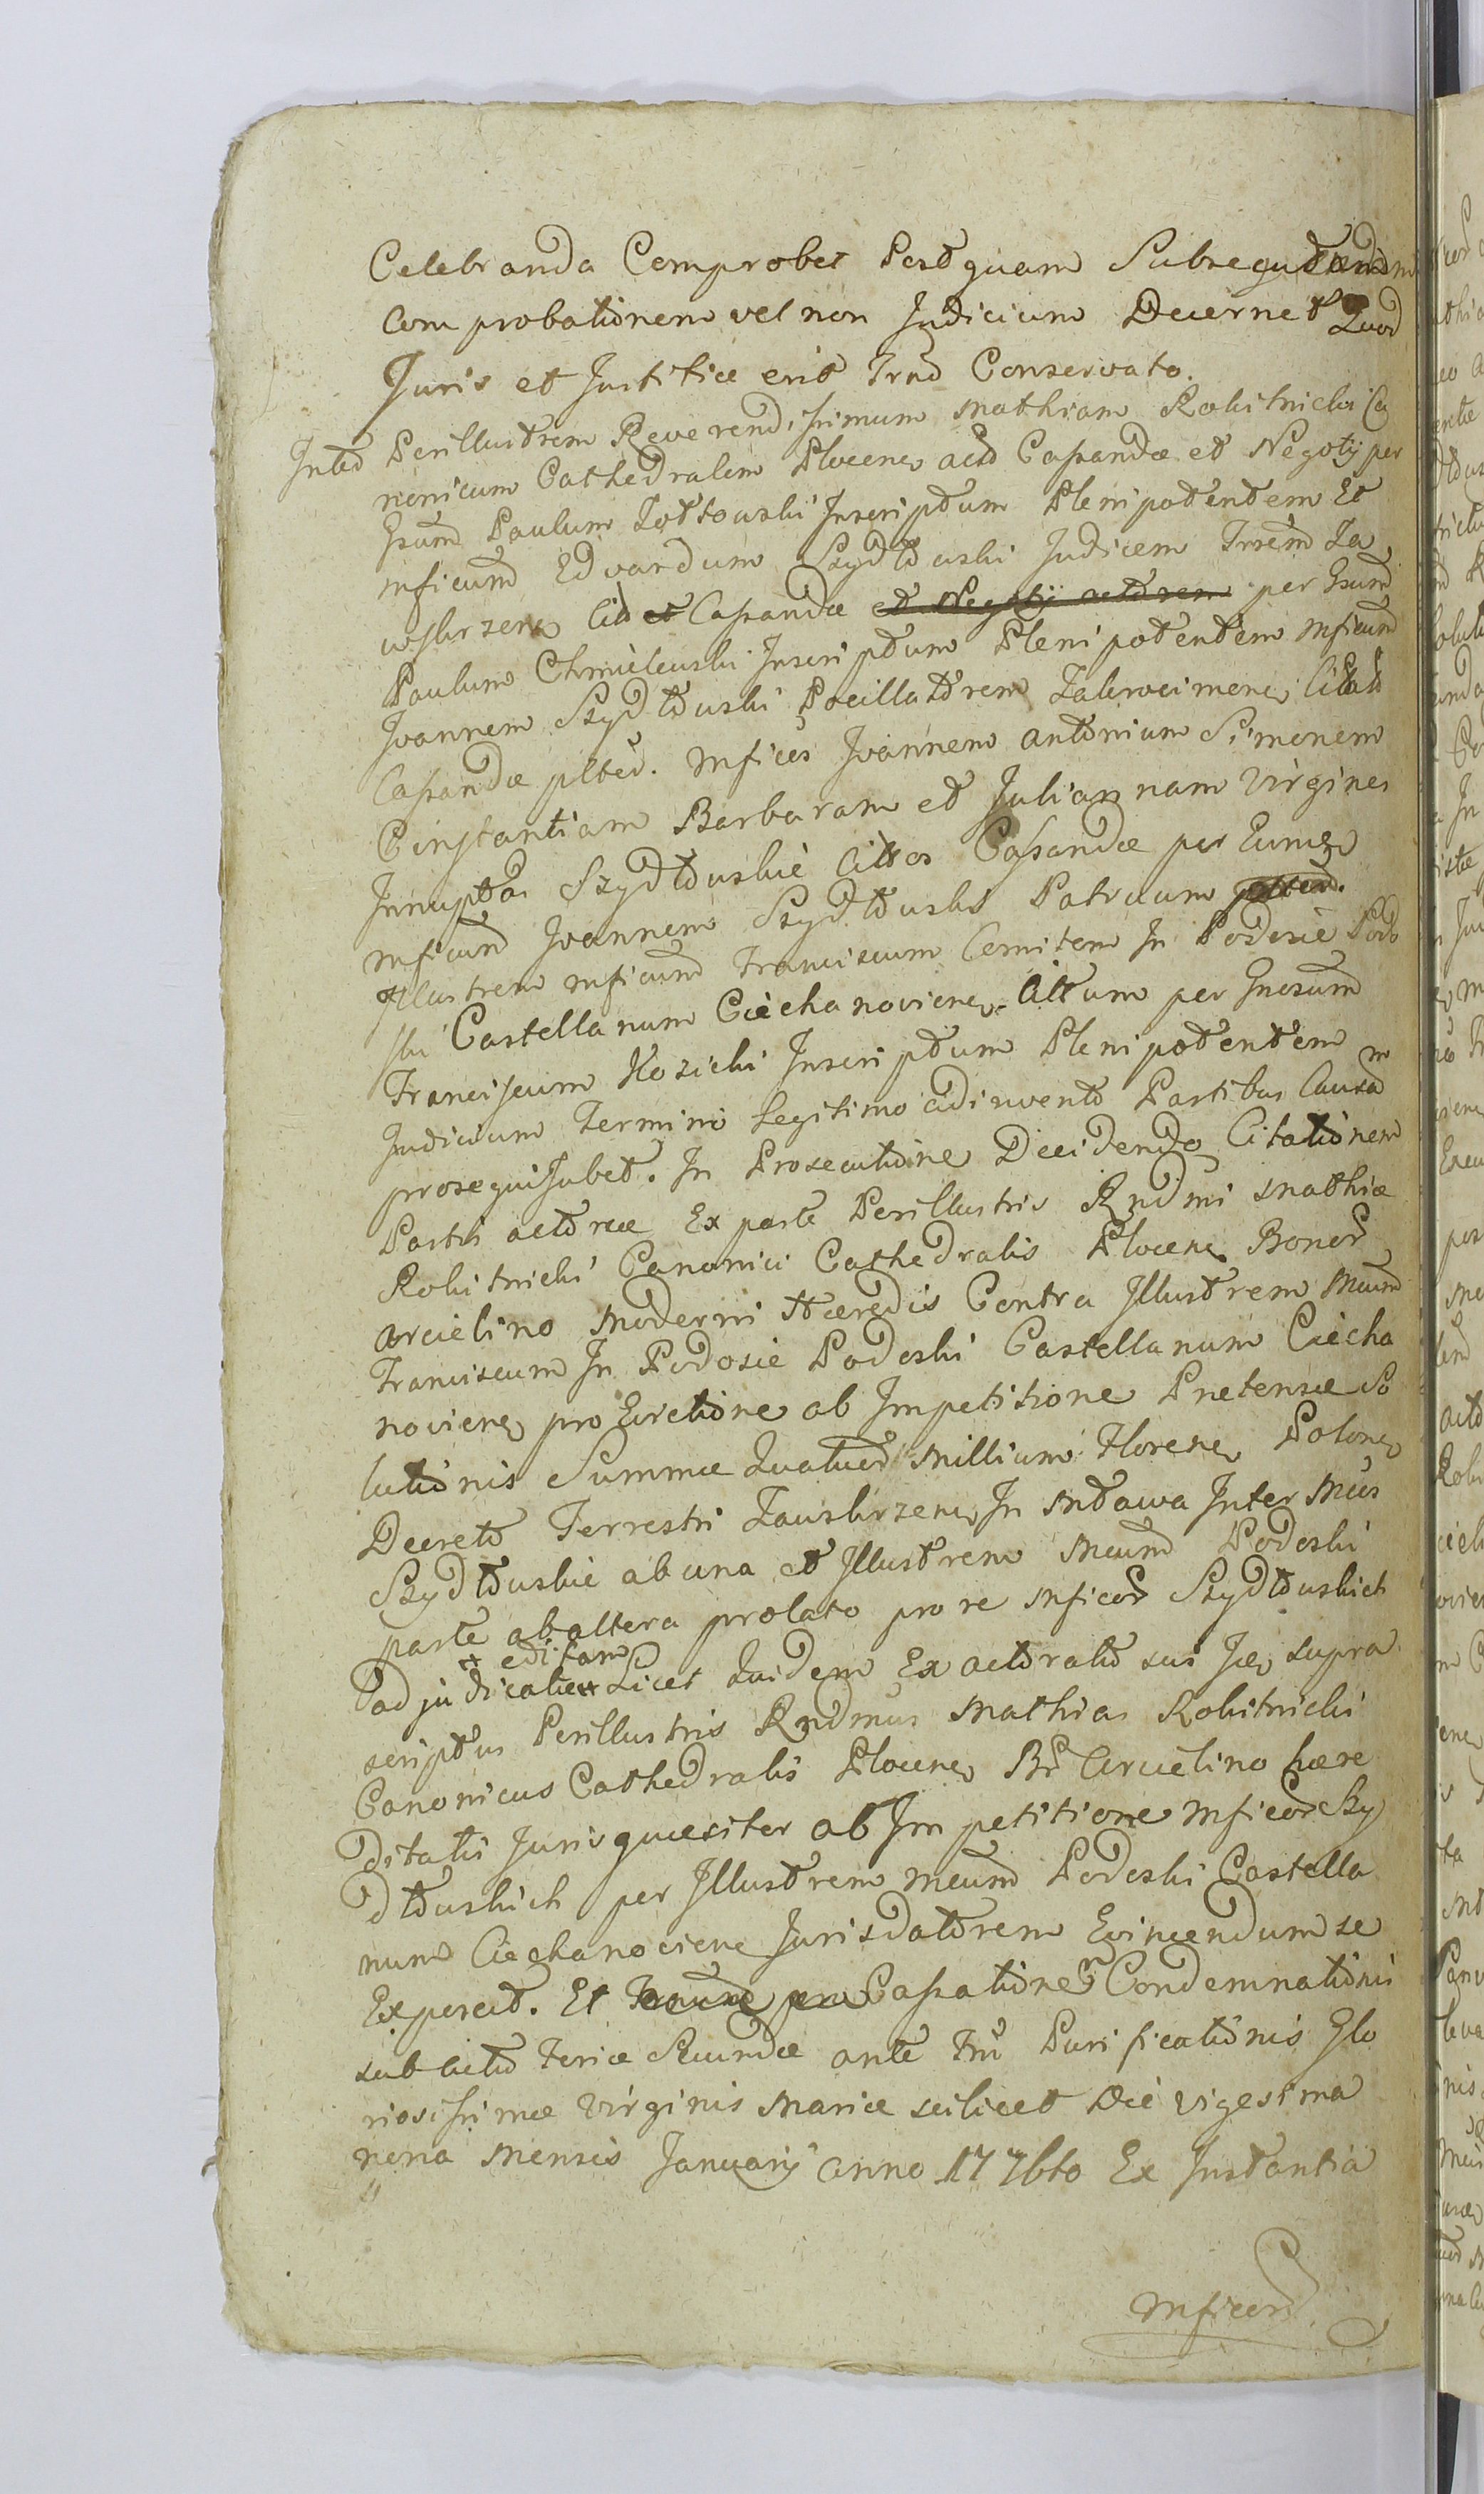 Celebranda Comprobet Postquam Subsequtam
Comprobationem vel non Judicium Decernet Quod
Juris et Justitiæ erit Trno Conservato.
Inter Perillustrem Reverendissimum Mathiam Rokitnicki Ca
nonicum Cathedralem Plocen Actō Cassandæ et Negotij per
Gsum Paulum Zottowski Inscriptum Plenipotentem Et
Mficum Edvardum Szydłowski Judicem Trrēm Za
wskrzen Citō et Cassandæ et Negotij actorem per Gsum
Paulum Chmielewski Inscriptum Plenipotentem Mficum
Joannem Szydłowski Pocillatorem Zakrocimen Citatō
Cassandæ pltēr. Mficos Joannem Antonium Simonem
Constantiam Barbaram et Juliannam Virgines
Innuptas Szydłowskie Cittos Cassandæ per Eund
Mficum Joannem Szydłowski Patruum
Illustrem Mficum Franciscum Comitem In Podosie Podo
ski Castellanum Ciechanoviens Cittum per Gnosum
Franciscum Kozicki Inscriptum Plenipotentem
Judicium Termino legitimo adinvento Partibus Causam
prosequi Jubet. In Prosecutione Decidendo Citationem
Partis actoreæ Ex parte Perillustris Rndmi Mathiæ
Rokitnicki Canonici Cathedralis Plocen Bonor
Arcielino Moderni Hæredis Contra Illustrem Mcum
Franciscum In Podosie Podoski Castellanum Ciecha
novien pro Evictione ab Impetitione Prætensæ So
lutionis Summæ Quatuor Millium Floren Polon
Decreto Terrestri Zawskrzen In Mława Inter Mcos
Szydłowskie ab una et Illustrem Mcum Podoski
parte ab altera prolato pro re Mficor Szydłowskich
adjudicatæ et editam Licet Quidem Ex actoratu sui Jce supra
scriptus Perillustris Rndmus Mathias Rokitnicki
Canonicus Cathedralis Plocen Br Arcielino hære
ditatis Juris quæsitor ab Impetitione Mficor Szy
dłowskich per Illustrem Mcum Podoski Castella
num Ciechanovien Jurisdatorem Evincendum se
Exposcit. Et Cassatione Condemnationis
sub actu Feriæ Secundæ ante Ftū Purificationis Glo
riosissimæ Virginis Mariæ scilicet Die vigesima
nona Mensis Januarij Anno 1776to Ex Instantia
Mficor